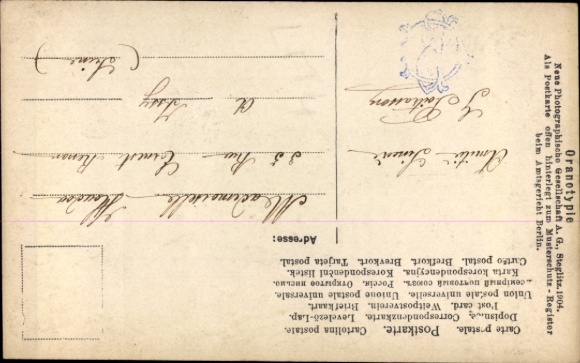 Carte postale. Cartolina postale.
Postkarte.
Dopisnice. Correspondenzkarte. Levelező-Lap.
Post card. Weltpostverein. Briefkaart.
Union postale universelle. Unione postale universale.
семірный почтовый союзъ. Россія. Открытое письмо.
Karta korespondencyjna. Korespondenční lístek.
Cartão postal. Bretkort. Brevkort. Tarjeta postal.
Adresse:
Mademoiselle
23 Rue Ernest Renan
à Issy
(Seine)
Amitié
Oranotypie
Neue Photographische Gesellschaft A. G., Steglitz. 1904.
Als Postkarte offen hinterlegt zum Musterschutz-Register
beim Amtsgericht Berlin.